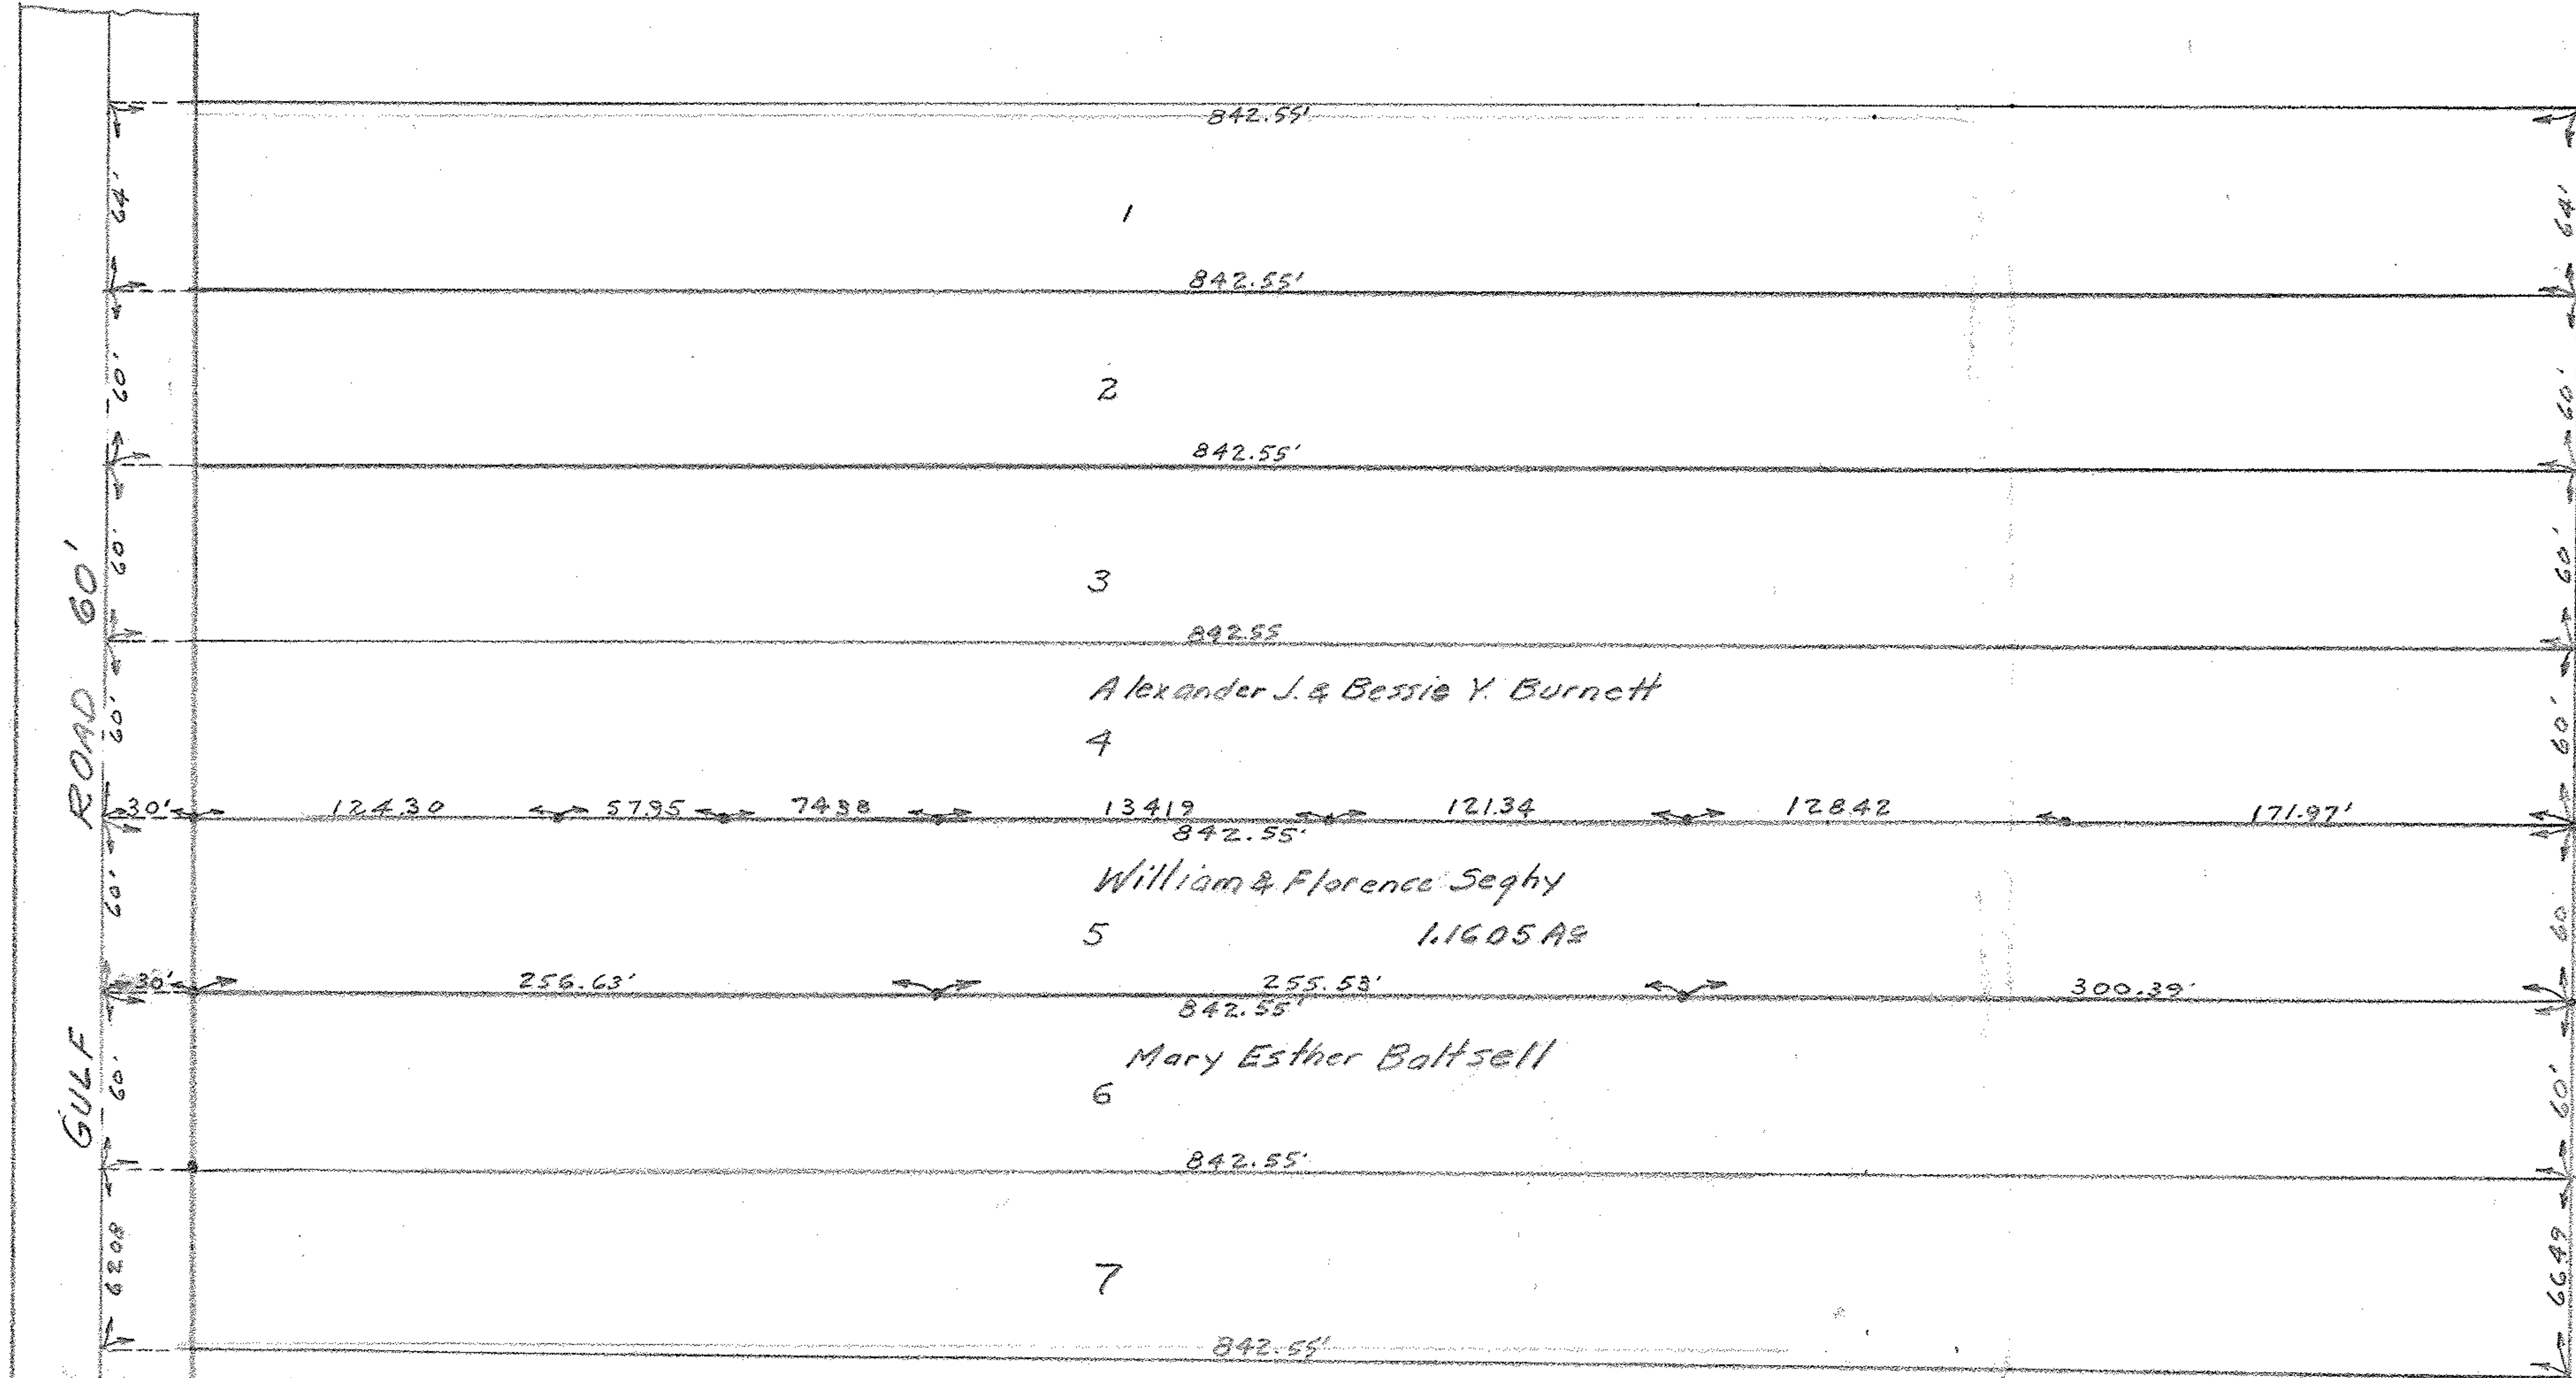 842.55'
64'
1
64'
842.55'
60'
2
60'
842.55'
60'
3
60'
842.55
Alexander J. & Bessie Y. Burnett
60'
4
60'
30' 124.30 57.95 74.38 134.19 121.34 128.42 171.97'
842.55'
William & Florence Seghy
60'
5 1.1605 Ac
60
30' 256.63' 255.53' 300.39'
842.55'
Mary Esther Baltsell
60'
6
60'
842.55'
6208
7
6649
842.55'
GULF ROAD 60'